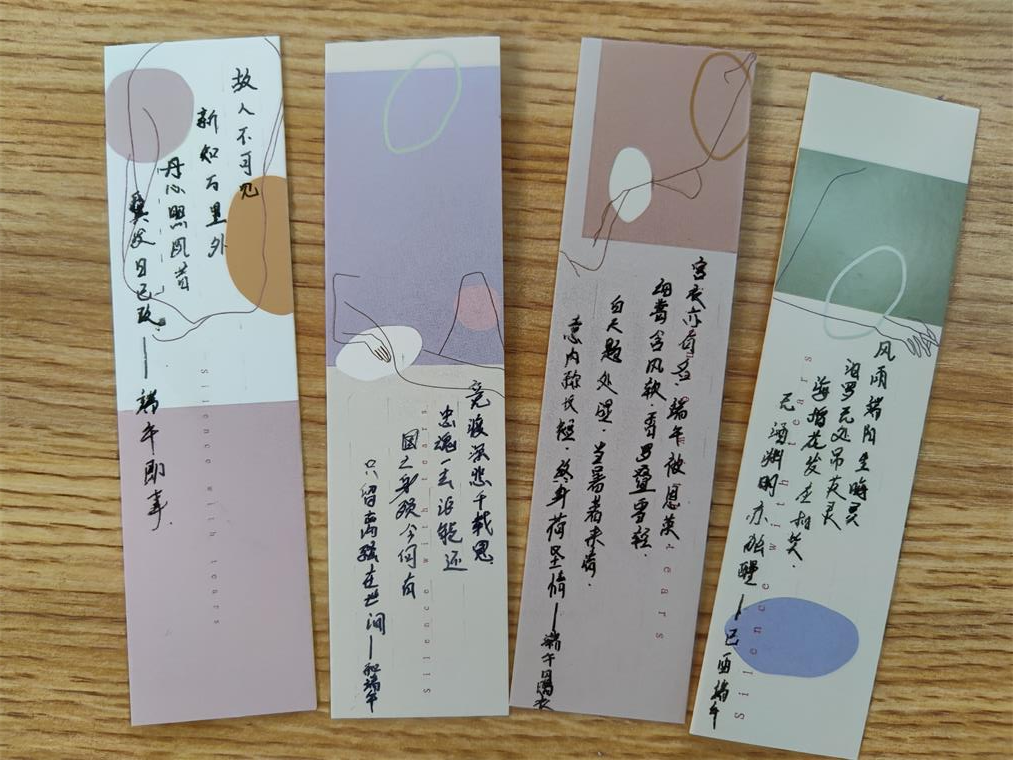 故人不可见
新知万里外
丹心照夙昔
鬓发日已改——端午即事.
Silence with tears
竞渡深悲千载冤
忠魂一去讵能还
国亡身殒今何有
只留离骚在世间——和端午
Silence with tears
宫衣亦有名.端午被恩荣
细葛含风软.香罗叠雪轻.
自天题处湿.当暑著来清.
意内称长短.终身荷圣情——端午日赐衣
风雨端阳生晦冥
汨罗无处吊英灵
海榴花发应相笑.
无酒渊明亦独醒——己酉端午
Silence with tears